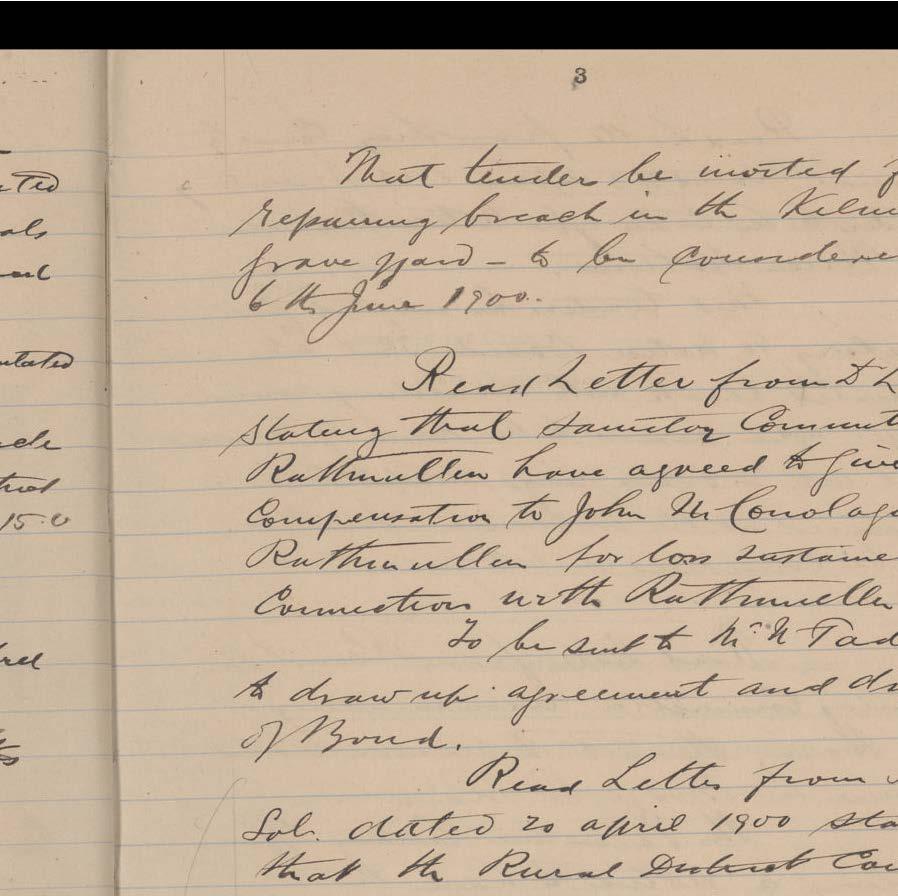 3
That tender be invited f
repairing breach in the Kilm
grave yard - to be considere
6th June 1900.
Read Letter from D L
stating that sanitory Committ
Rathmullen have agreed to give
Compensation to John McConolog
Rathmullen for loss sustaine
Connection with Rathmullen
To be sent to Mr Tad
to draw up agreement and dr
of Bond.
Read Letter from
Sol. dated 20 april 1900 sta
that the Rural District Cou